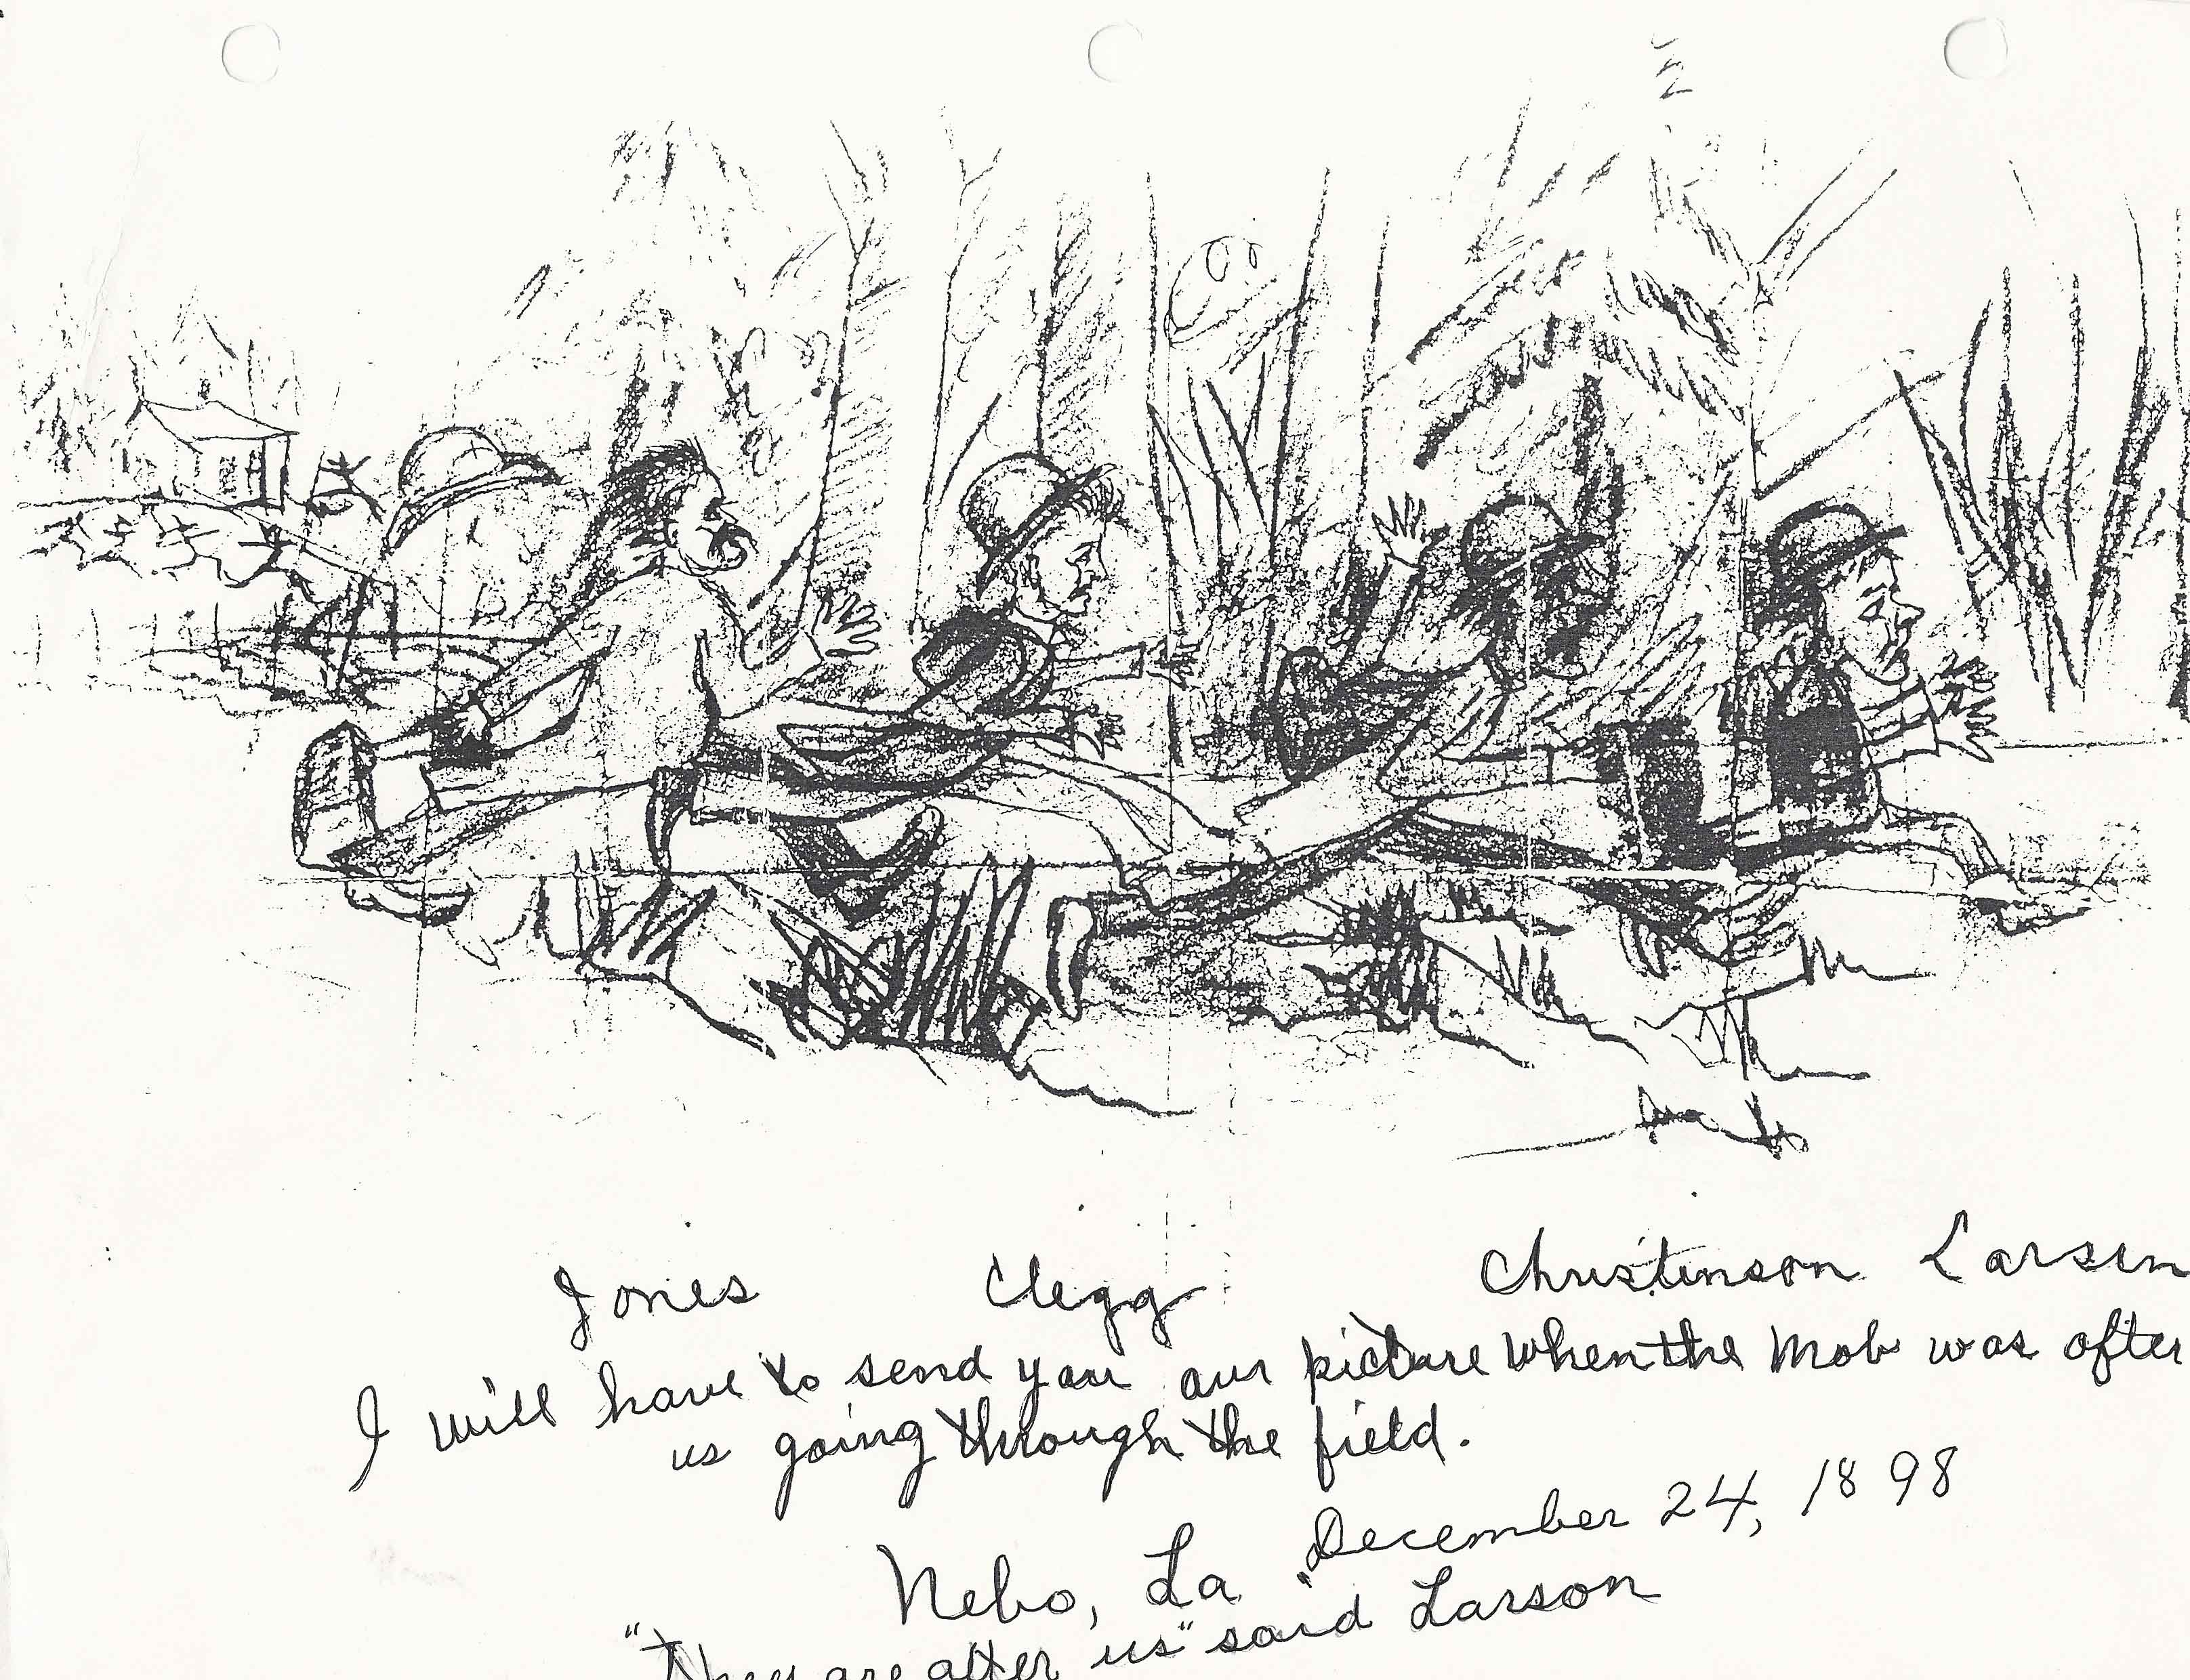 Jones Clegg Christinson Larsen
I will have to send you our picture when the Mob was after
us going through the field.
Nebo, La December 24, 1898
"They are after us" said Larson